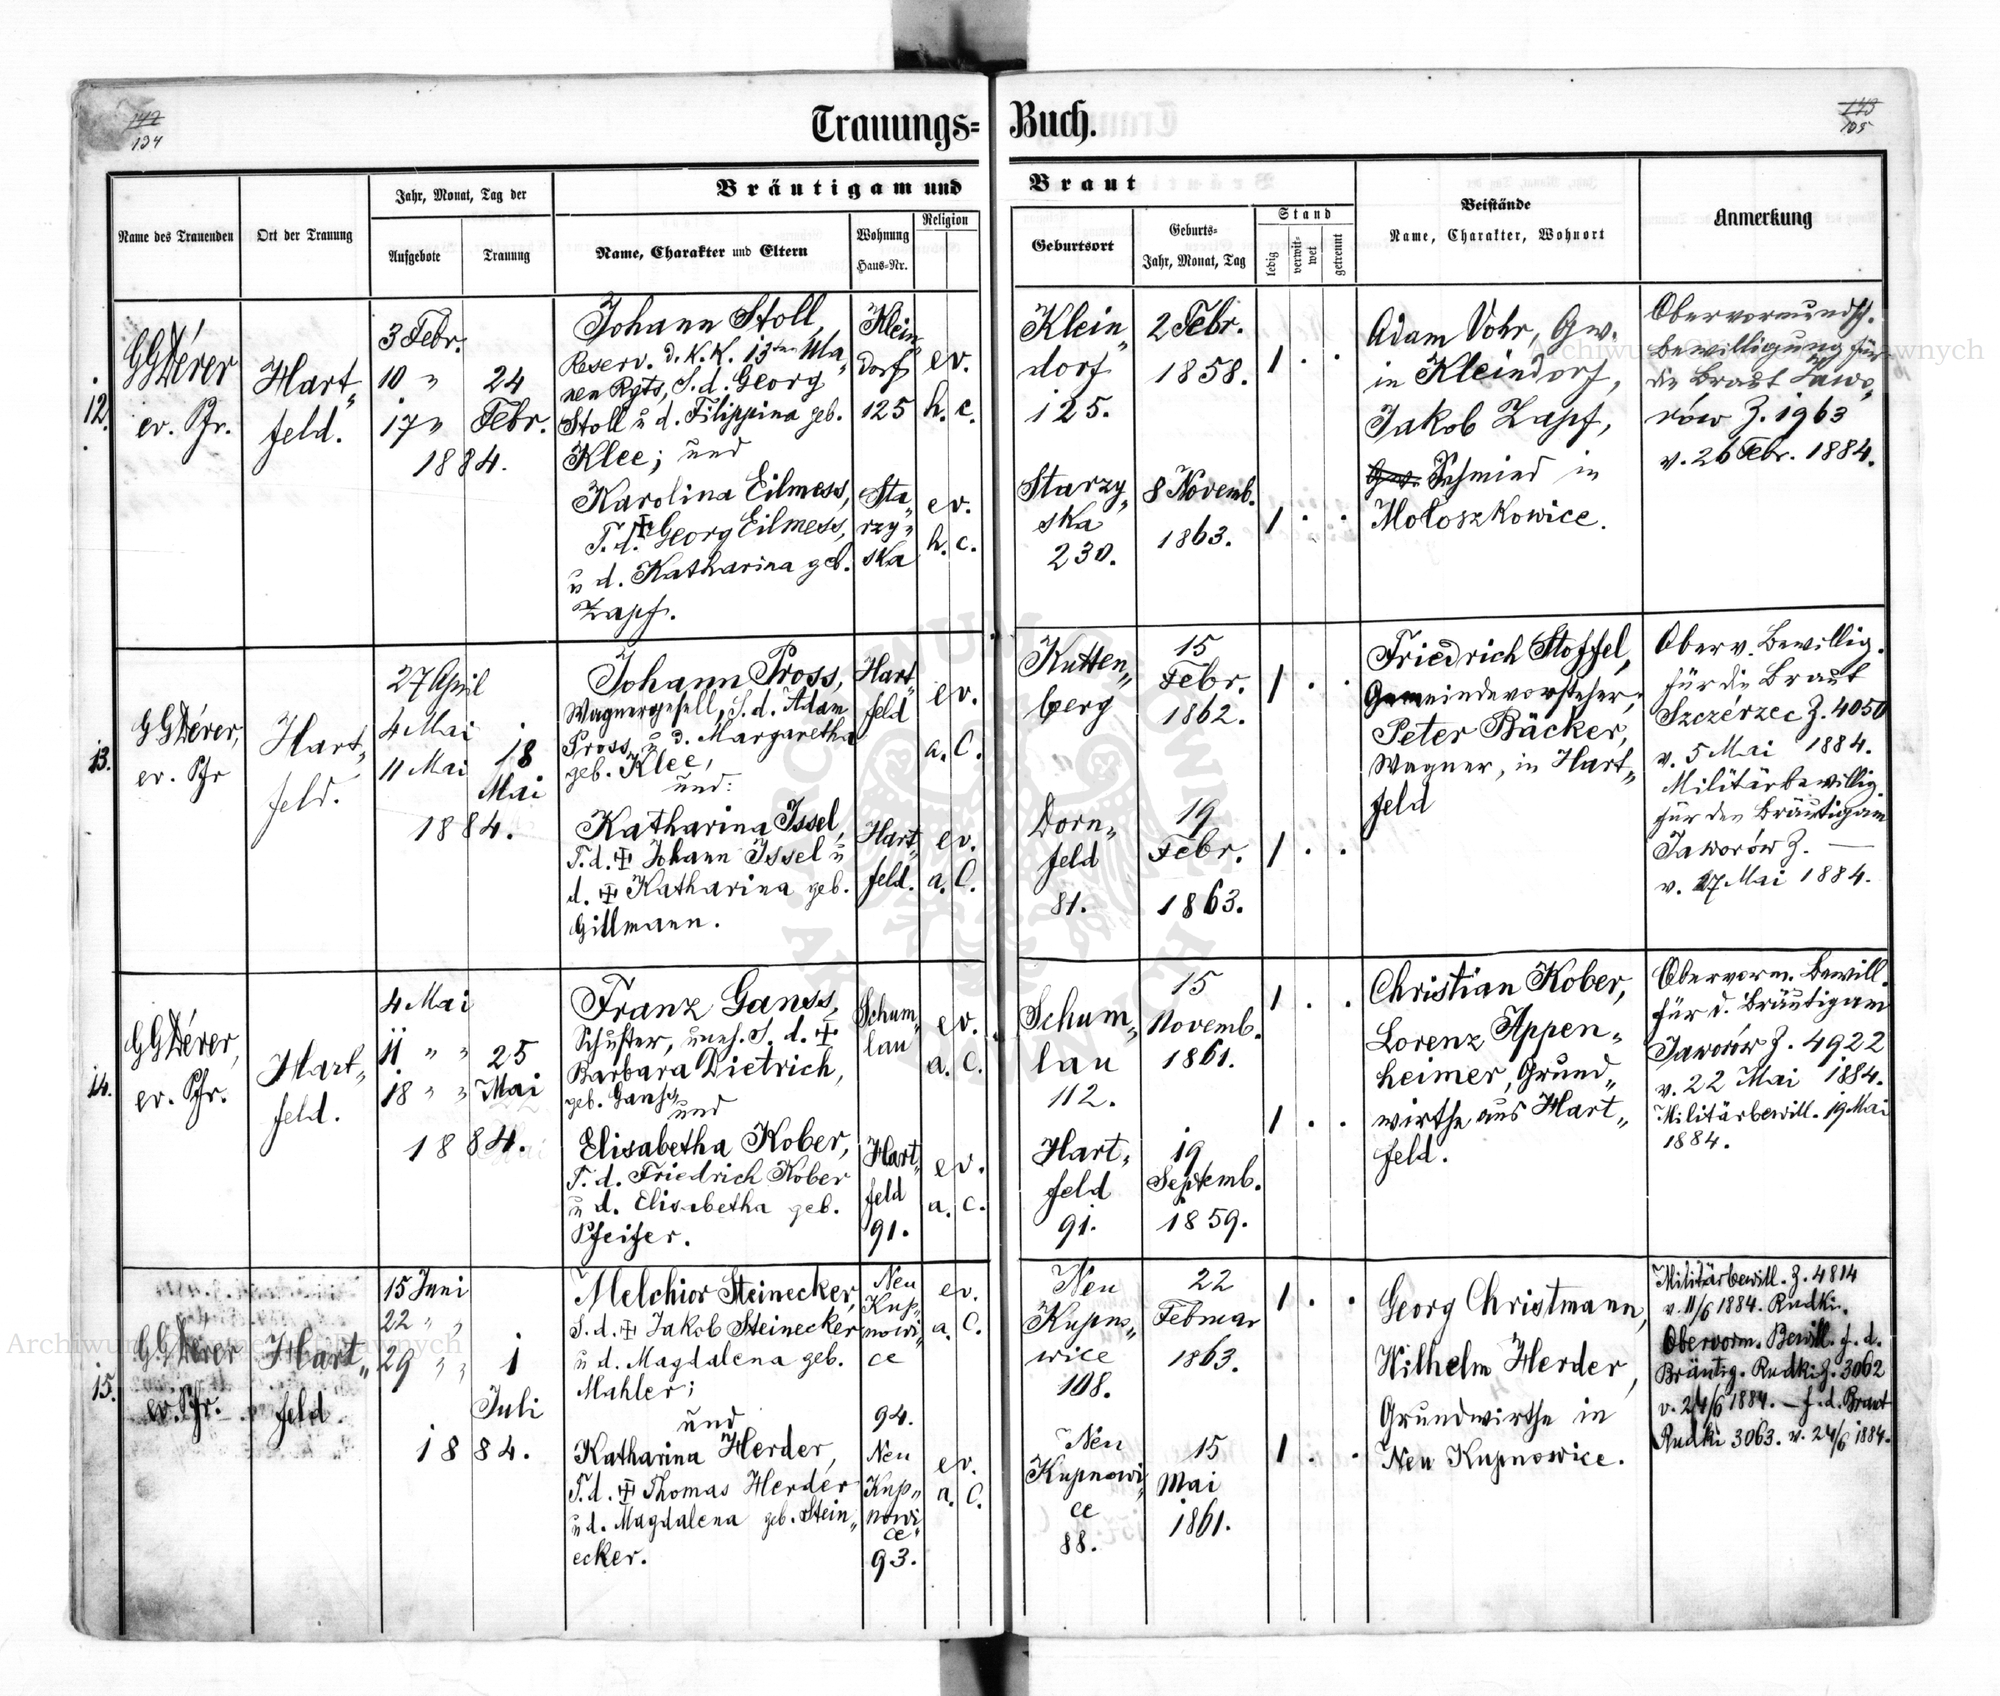 142
134
Trauungs=
Buch.
143
135
Name des Trauenden
Ort der Trauung
Jahr, Monat, Tag der
Aufgebote
Trauung
Bräutigam und
Name, Charakter und Eltern
Wohnung
Haus=Nr.
Religion
Braut
Geburtsort
Geburts=
Jahr, Monat, Tag
Stand
ledig
verwit=
wet
getrennt
Beistände
Name, Charakter, Wohnort
Anmerkung
12.
ev. Pfr.
Hart„
feld.
3 Febr.
10 „
17 „
24
Febr.
1884.
Johann Stoll,
Reserv. d. K. K. 13ten Ula„
nen Rgts, S. d. Georg
Stoll u d. Filippina geb.
Klee; und
Karolina Eilmess,
T. d. ✝ Georg Eilmess,
u d. Katharina geb.
Zapf.
Klein„
dorf
125
Sta„
rzy„
ska
ev.
h. c.
ev.
h. c.
Klein„
dorf
125.
Starzy„
ska
230.
2 Febr.
1858.
8 Novemb.
1863.
1 . .
1 . .
Adam Vohr, Gw.
in Kleindorf,
Jakob Zapf,
Gw. Schmied in
Moloszkowice.
Obervormundsch.
bewilligung für
die Braut Jawo„
rów Z. 1963
v. 26 Febr. 1884.
13.
ev. Pfr
Hart„
feld.
27 April
4 Mai
11 Mai
18
Mai
1884.
Johann Pross,
Wagnergesell, S. d. Adam
Pross, u d. Margaretha
geb. Klee,
und
Katharina Issel,
T. d. ✝ Johann Issel u
d. ✝ Katharina geb.
Gillmann.
Hart„
feld
Hart„
feld.
ev.
a. C.
ev.
a. C.
Kutten„
berg
Dorn„
feld
81.
15
Febr.
1862.
19
Febr.
1863.
1 . .
1 . .
Friedrich Stoffel,
Gemeindevorsteher,
Peter Bäcker,
Wagner, in Hart„
feld
Oberv. Bewillig.
für die Braut
Szczerzec Z. 4050
v. 5 Mai 1884.
Militärbewillig.
für den Bräutigam
Jaworów Z. —
v. 17 Mai 1884.
14.
ev. Pfr.
Hart„
feld.
4 Mai
11. „ „
18 „ „
25
Mai
1884.
Franz Ganss,
Schuster, uneh. S. d. ✝
Barbara Dietrich,
geb. Ganss
und
Elisabetha Kober,
T. d. Friedrich Kober
u d. Elisabetha geb.
Pfeifer.
Schum„
lau
Hart„
feld
91.
ev.
a. C.
ev.
a. C.
Schum„
lau
112.
Hart„
feld
91.
15
Novemb.
1861.
19
Septemb.
1859.
1 . .
1 . .
Christian Kober,
Lorenz Appen„
heimer, Grund„
wirthe aus Hart„
feld.
Obervorm. Bewill.
für d. Bräutigam
Jaworów Z. 4922
v. 22 Mai 1884.
Militärbewill. 19 Mai
1884.
15.
ev. Pfr.
Hart„
feld
15 Juni
22 „ „
29 „ „
1
Juli
1884.
Melchior Steinecker,
S. d. ✝ Jakob Steinecker
u d. Magdalena geb.
Mahler;
und
Katharina Herder,
T. d. ✝ Thomas Herder
u d. Magdalena geb. Stein„
ecker.
Neu
Kup„
nowi„
ce
94.
Neu
Kup„
nowi„
ce
93.
ev.
a. C.
ev.
a. C.
Neu
Kupno„
wice
108.
Neu
Kupnowi„
ce
88.
22
Februar
1863.
15
Mai
1861.
1 . .
1 . .
Georg Christmann,
Wilhelm Herder,
Grundwirthe in
Neu Kupnowice.
Militärbewill. Z. 4814
v. 11/6 1884. Rudki.
Obervorm. Bewill. f. d.
Bräutig. Rudki Z. 3062
v. 24/6 1884. — f. d. Braut
Rudki 3063. v. 24/6 1884.